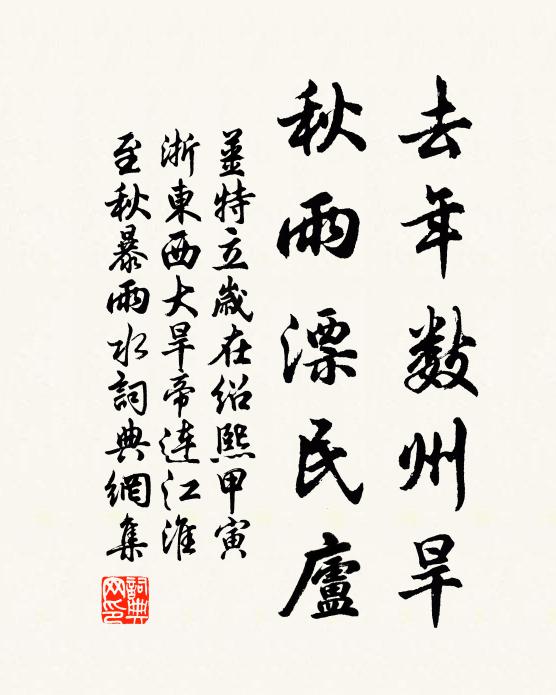 去年數州旱
秋雨漂民廬
姜特立歲在紹熙甲寅
浙東西大旱帝連江淮
至秋暴雨水詞典網集
詞典網印